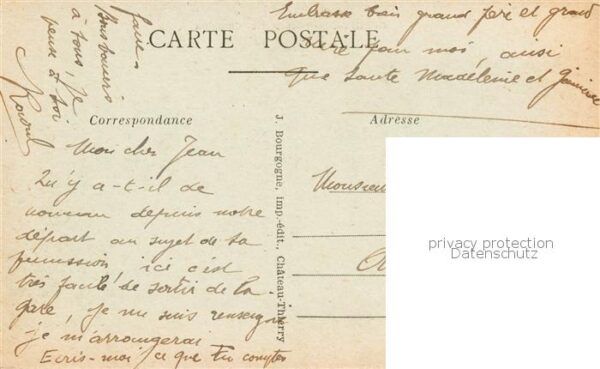 CARTE POSTALE
Correspondance
Adresse
J. Bourgogne, imp.-édit., Château-Thierry
Mon cher Jean
Qu'y a-t-il de
nouveau depuis notre
départ au sujet de ta
permission, ici c'est
très facile de sortir de la
gare, je me suis renseigné
je m'arrangerai
Ecris-moi ce que tu comptes
faire
Bons baisers
à tous, Je
pense à toi
Raoul
Embrasse bien grand père et grand
mère pour moi, aussi
que tante Madeleine et
Monsieur
privacy protection
Datenschutz